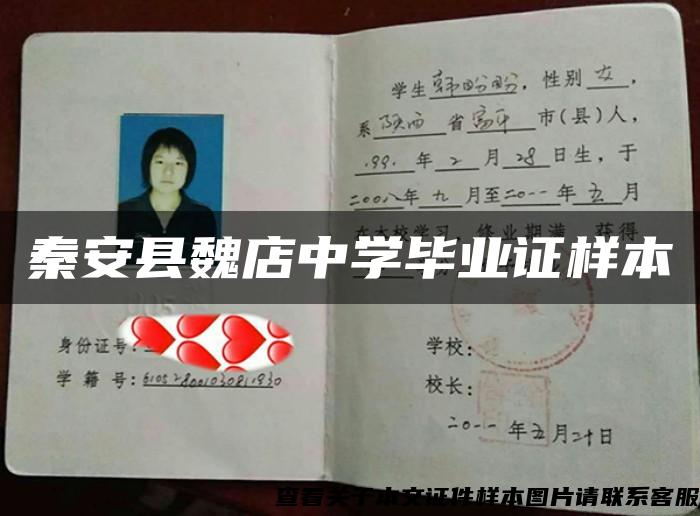 学生韩盼盼,性别女,
系陕西省富平市(县)人,
1991年2月28日生,于
二〇〇八年九月至二〇一一年五月
在本校学习,修业期满,获得
秦安县魏店中学毕业证样本
身份证号:
学籍号:610528001030811930
学校:
校长:
二〇一一年五月二十日
查看关于本文证件样本图片请联系客服